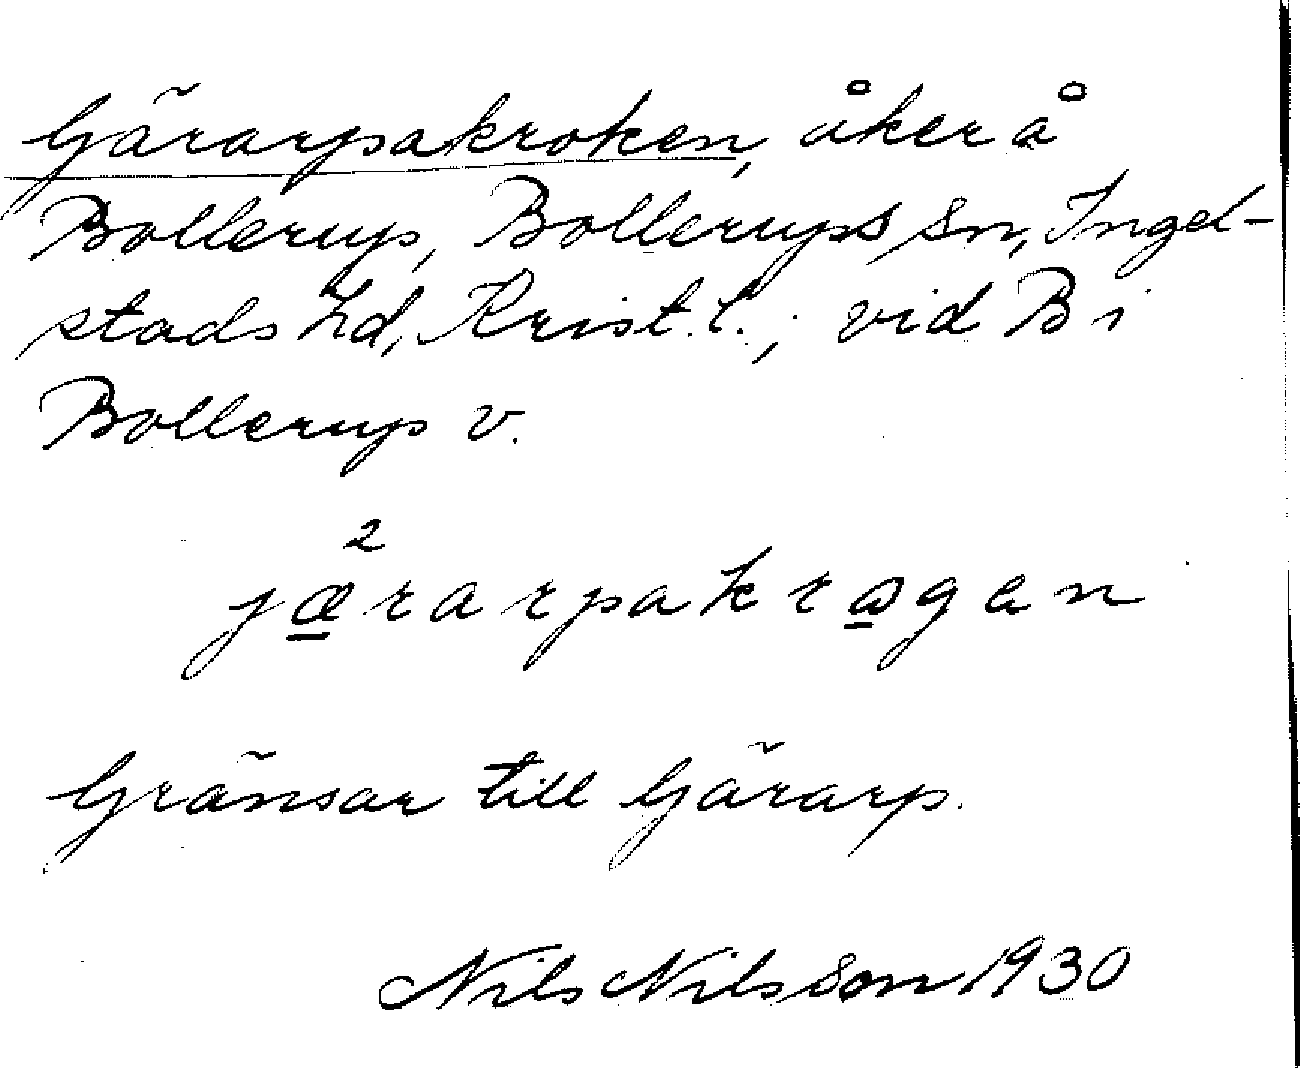 Gärarpakroken, åker å
Bollerup, Bollerups sn, Ingel-
stads hd, Krist. l.; vid B i
Bollerup v.
2
jærarpakrogen
Gränsar till Gärarp.
Nils Nilsson 1930